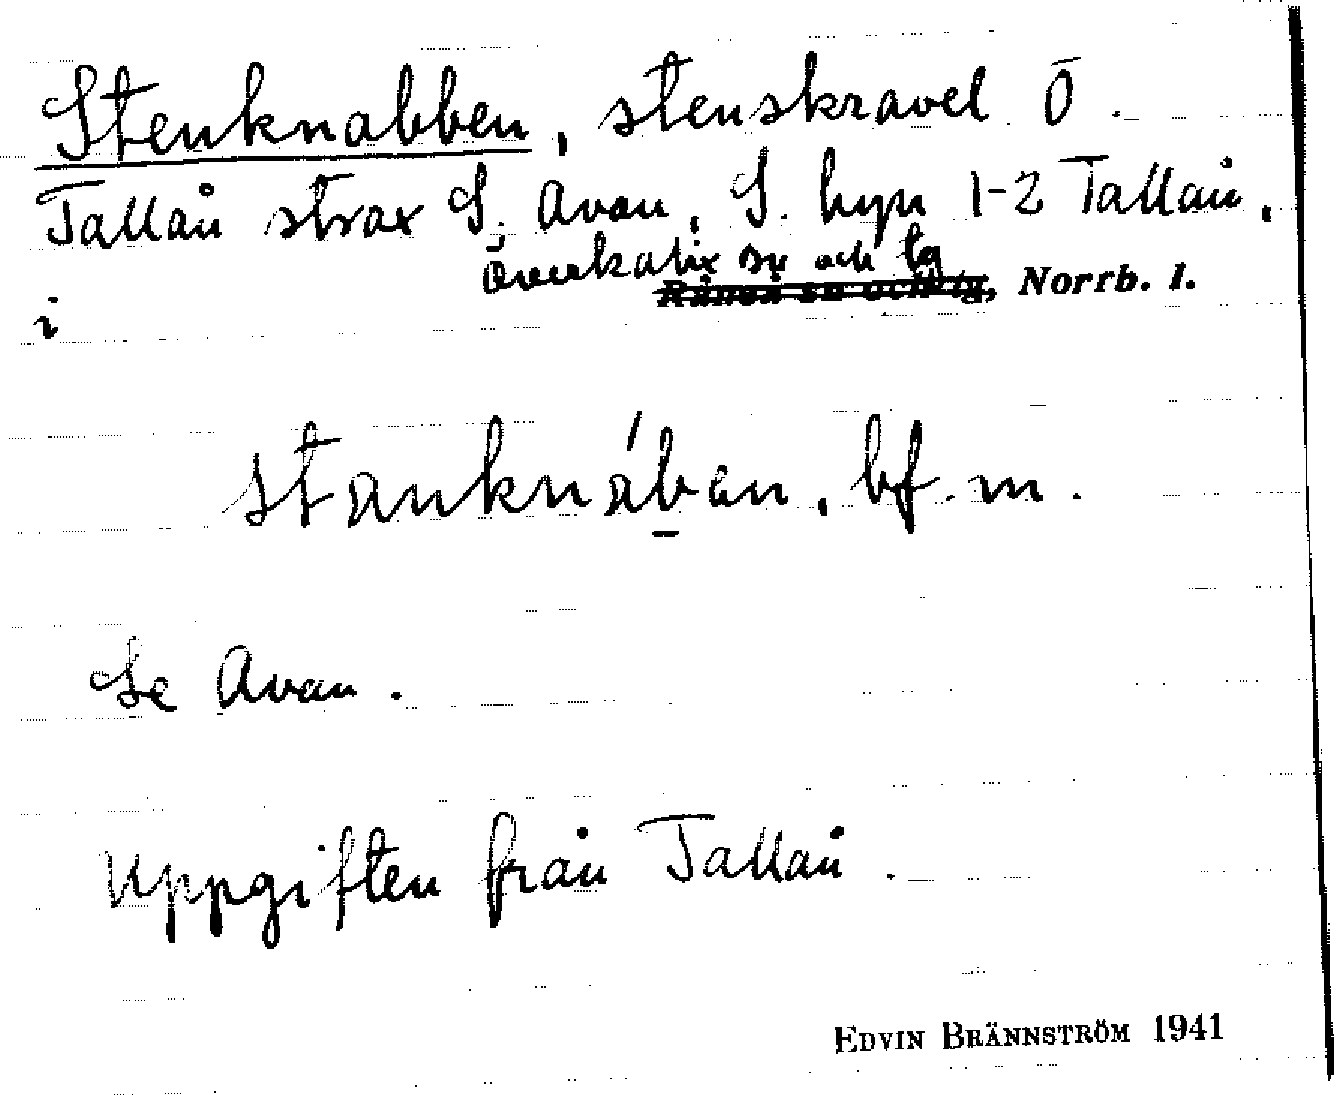 Stenknabben, stenskravel Ö.
Tallån strax S. Avan, S. hyn 1-2 Tallån,
Överkalix sn och lg
i Råneå sn och lg, Norrb. l.
stanknában, bf. m.
Se Avan.
Uppgiften från Tallån.
EDVIN BRÄNNSTRÖM 1941